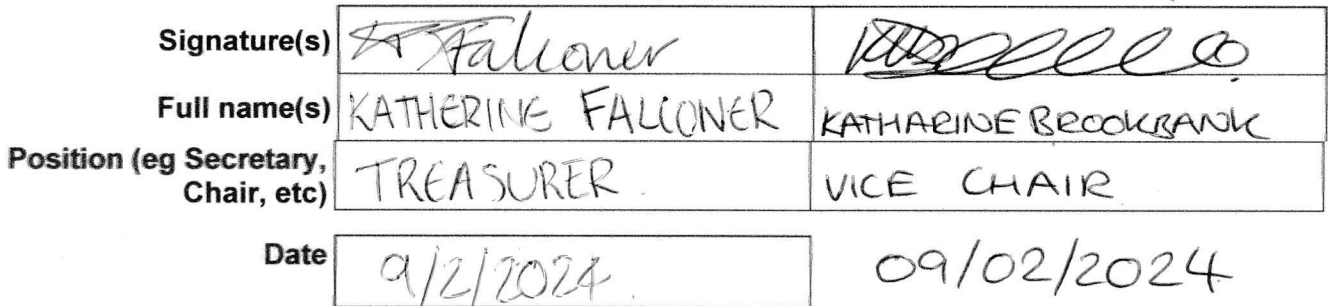 Signature(s) Falconer
Full name(s) KATHERINE FALCONER KATHARINE BROOKBANK
Position (eg Secretary, Chair, etc) TREASURER. VICE CHAIR
Date 9/2/2024. 09/02/2024